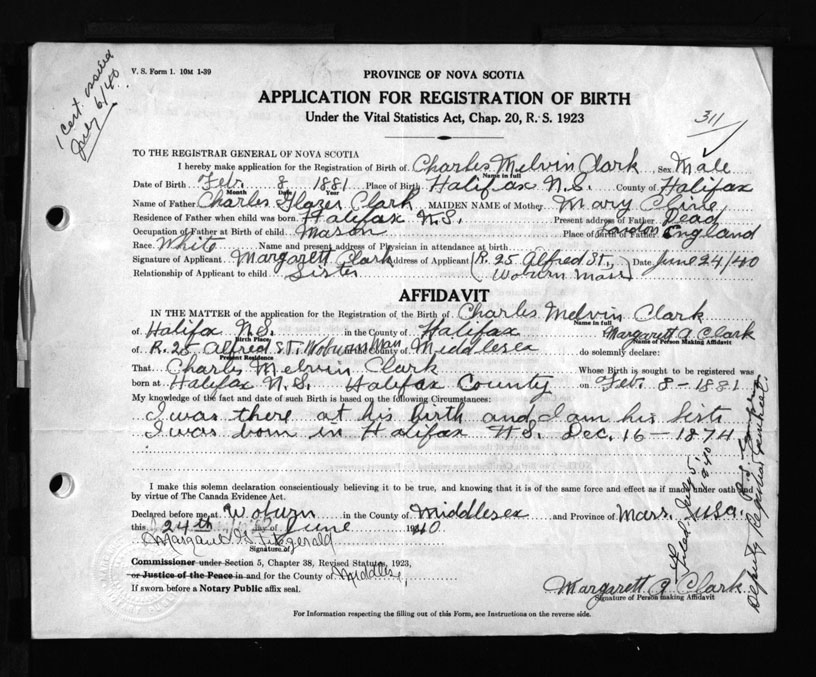 1 Cert. issued
July 6/40
V. S. Form 1. 10M 1-39
PROVINCE OF NOVA SCOTIA
APPLICATION FOR REGISTRATION OF BIRTH
Under the Vital Statistics Act, Chap. 20, R. S. 1923
311
TO THE REGISTRAR GENERAL OF NOVA SCOTIA
I hereby make application for the Registration of Birth of Charles Melvin Clark Sex Male
Name in full
Date of Birth Feb. 8 1881 Place of Birth Halifax N.S. County of Halifax
Month Date Year
Name of Father Charles Glazer Clark MAIDEN NAME of Mother Mary
Residence of Father when child was born Halifax N.S. Present address of Father Dead
Occupation of Father at Birth of child Mason Place of Birth of Father London England
Race White Name and present address of Physician in attendance at birth
Signature of Applicant Margarett Clark Address of Applicant (R. 25 Alfred St., Date June 24/40
Relationship of Applicant to child Sister Woburn Mass)
AFFIDAVIT
IN THE MATTER of the application for the Registration of the Birth of Charles Melvin Clark
Name in full
of Halifax N.S. in the County of Halifax Margarett A Clark
Birth Place Name of Person Making Affidavit
of R. 25 Alfred St. Woburn Mass in the County of Middlesex do solemnly declare:
Present Residence
That Charles Melvin Clark Whose Birth is sought to be registered was
born at Halifax N.S. Halifax County on Feb. 8-1881
My knowledge of the fact and date of such Birth is based on the following Circumstances:
I was there at his birth and I am his Sister
I was born in Halifax N.S. Dec. 16-1874
I make this solemn declaration conscientiously believing it to be true, and knowing that it is of the same force and effect as if made under oath and
by virtue of The Canada Evidence Act.
Declared before me at Woburn in the County of Middlesex and Province of Mass. USA.
this 24th day of June 1940
Margaret G. Fitzgerald
Signature of
Commissioner under Section 5, Chapter 38, Revised Statutes, 1923,
or Justice of the Peace in and for the County of Middlesex
If sworn before a Notary Public affix seal.
Margarett A. Clark
Signature of Person making Affidavit
For Information respecting the filling out of this Form, see Instructions on the reverse side.
Filed: July 5, 1940
Deputy Registrar General